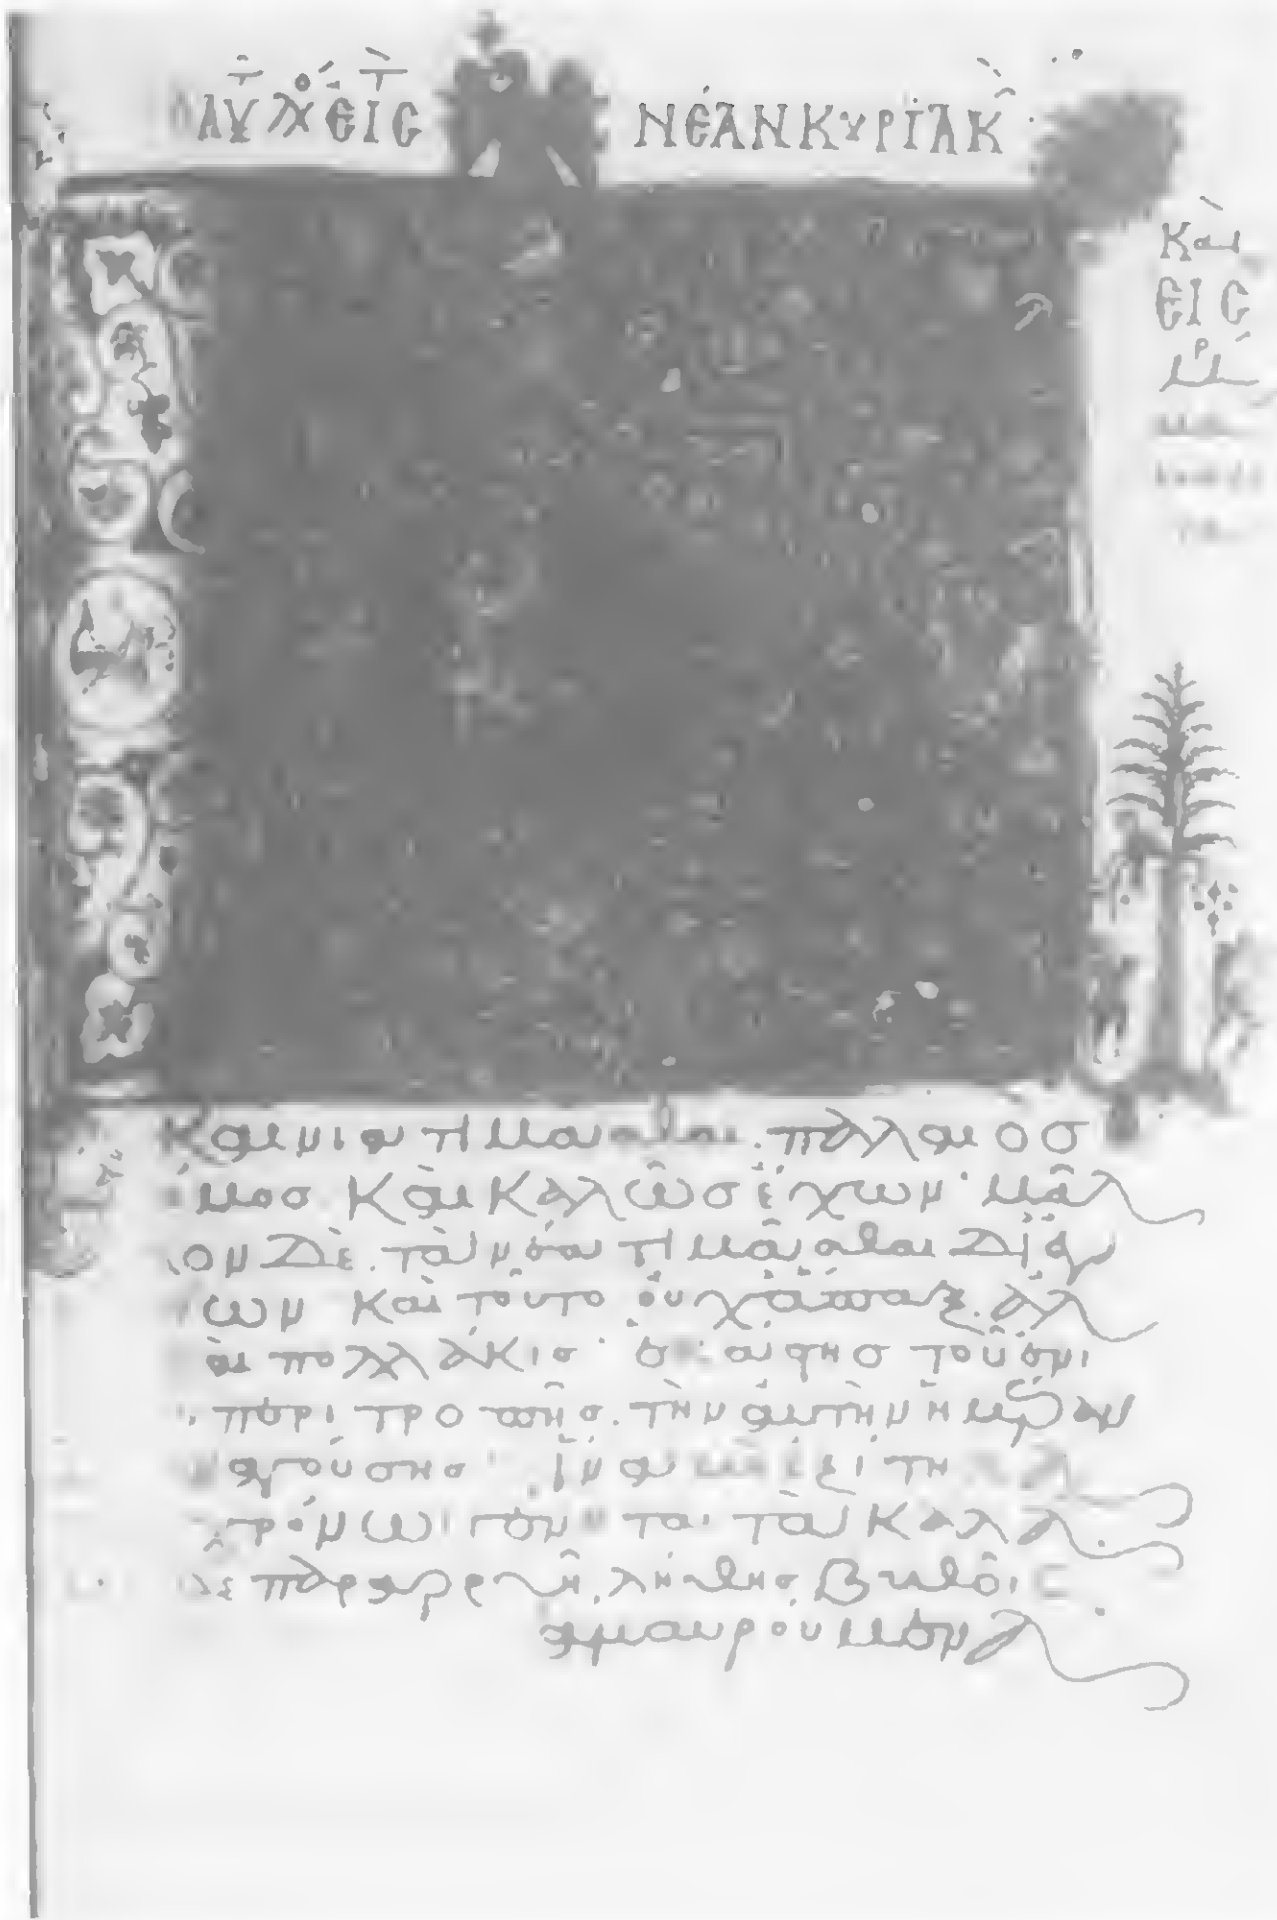 ΛΟΓ ΕΙC Τ ΝΕΑΝ ΚΥΡΙΑΚ
Καὶ
ΕΙC
καίνια τιμᾶσθαι. παλαιὸσ
νόμοσ. καὶ καλῶσ ἔχων· μᾶλ
λον δὲ. τὰ νέα τιμᾶσθαι δι' ἐγ
ων καὶ τοῦτο οὐχ ἅπαξ. ἀλ
αι πολλάκισ· τοῦ ἐνι
περιτροπῆσ. τὴν αὐτὴν ἡμέραν
αγούσησ· ἵνα μὴ ἐξίτηλα
χρόνωι γένηται τὰ καλά.
δὲ παραρρυῆ, λήθησ βυθοῖς
ἀμαυρούμενα